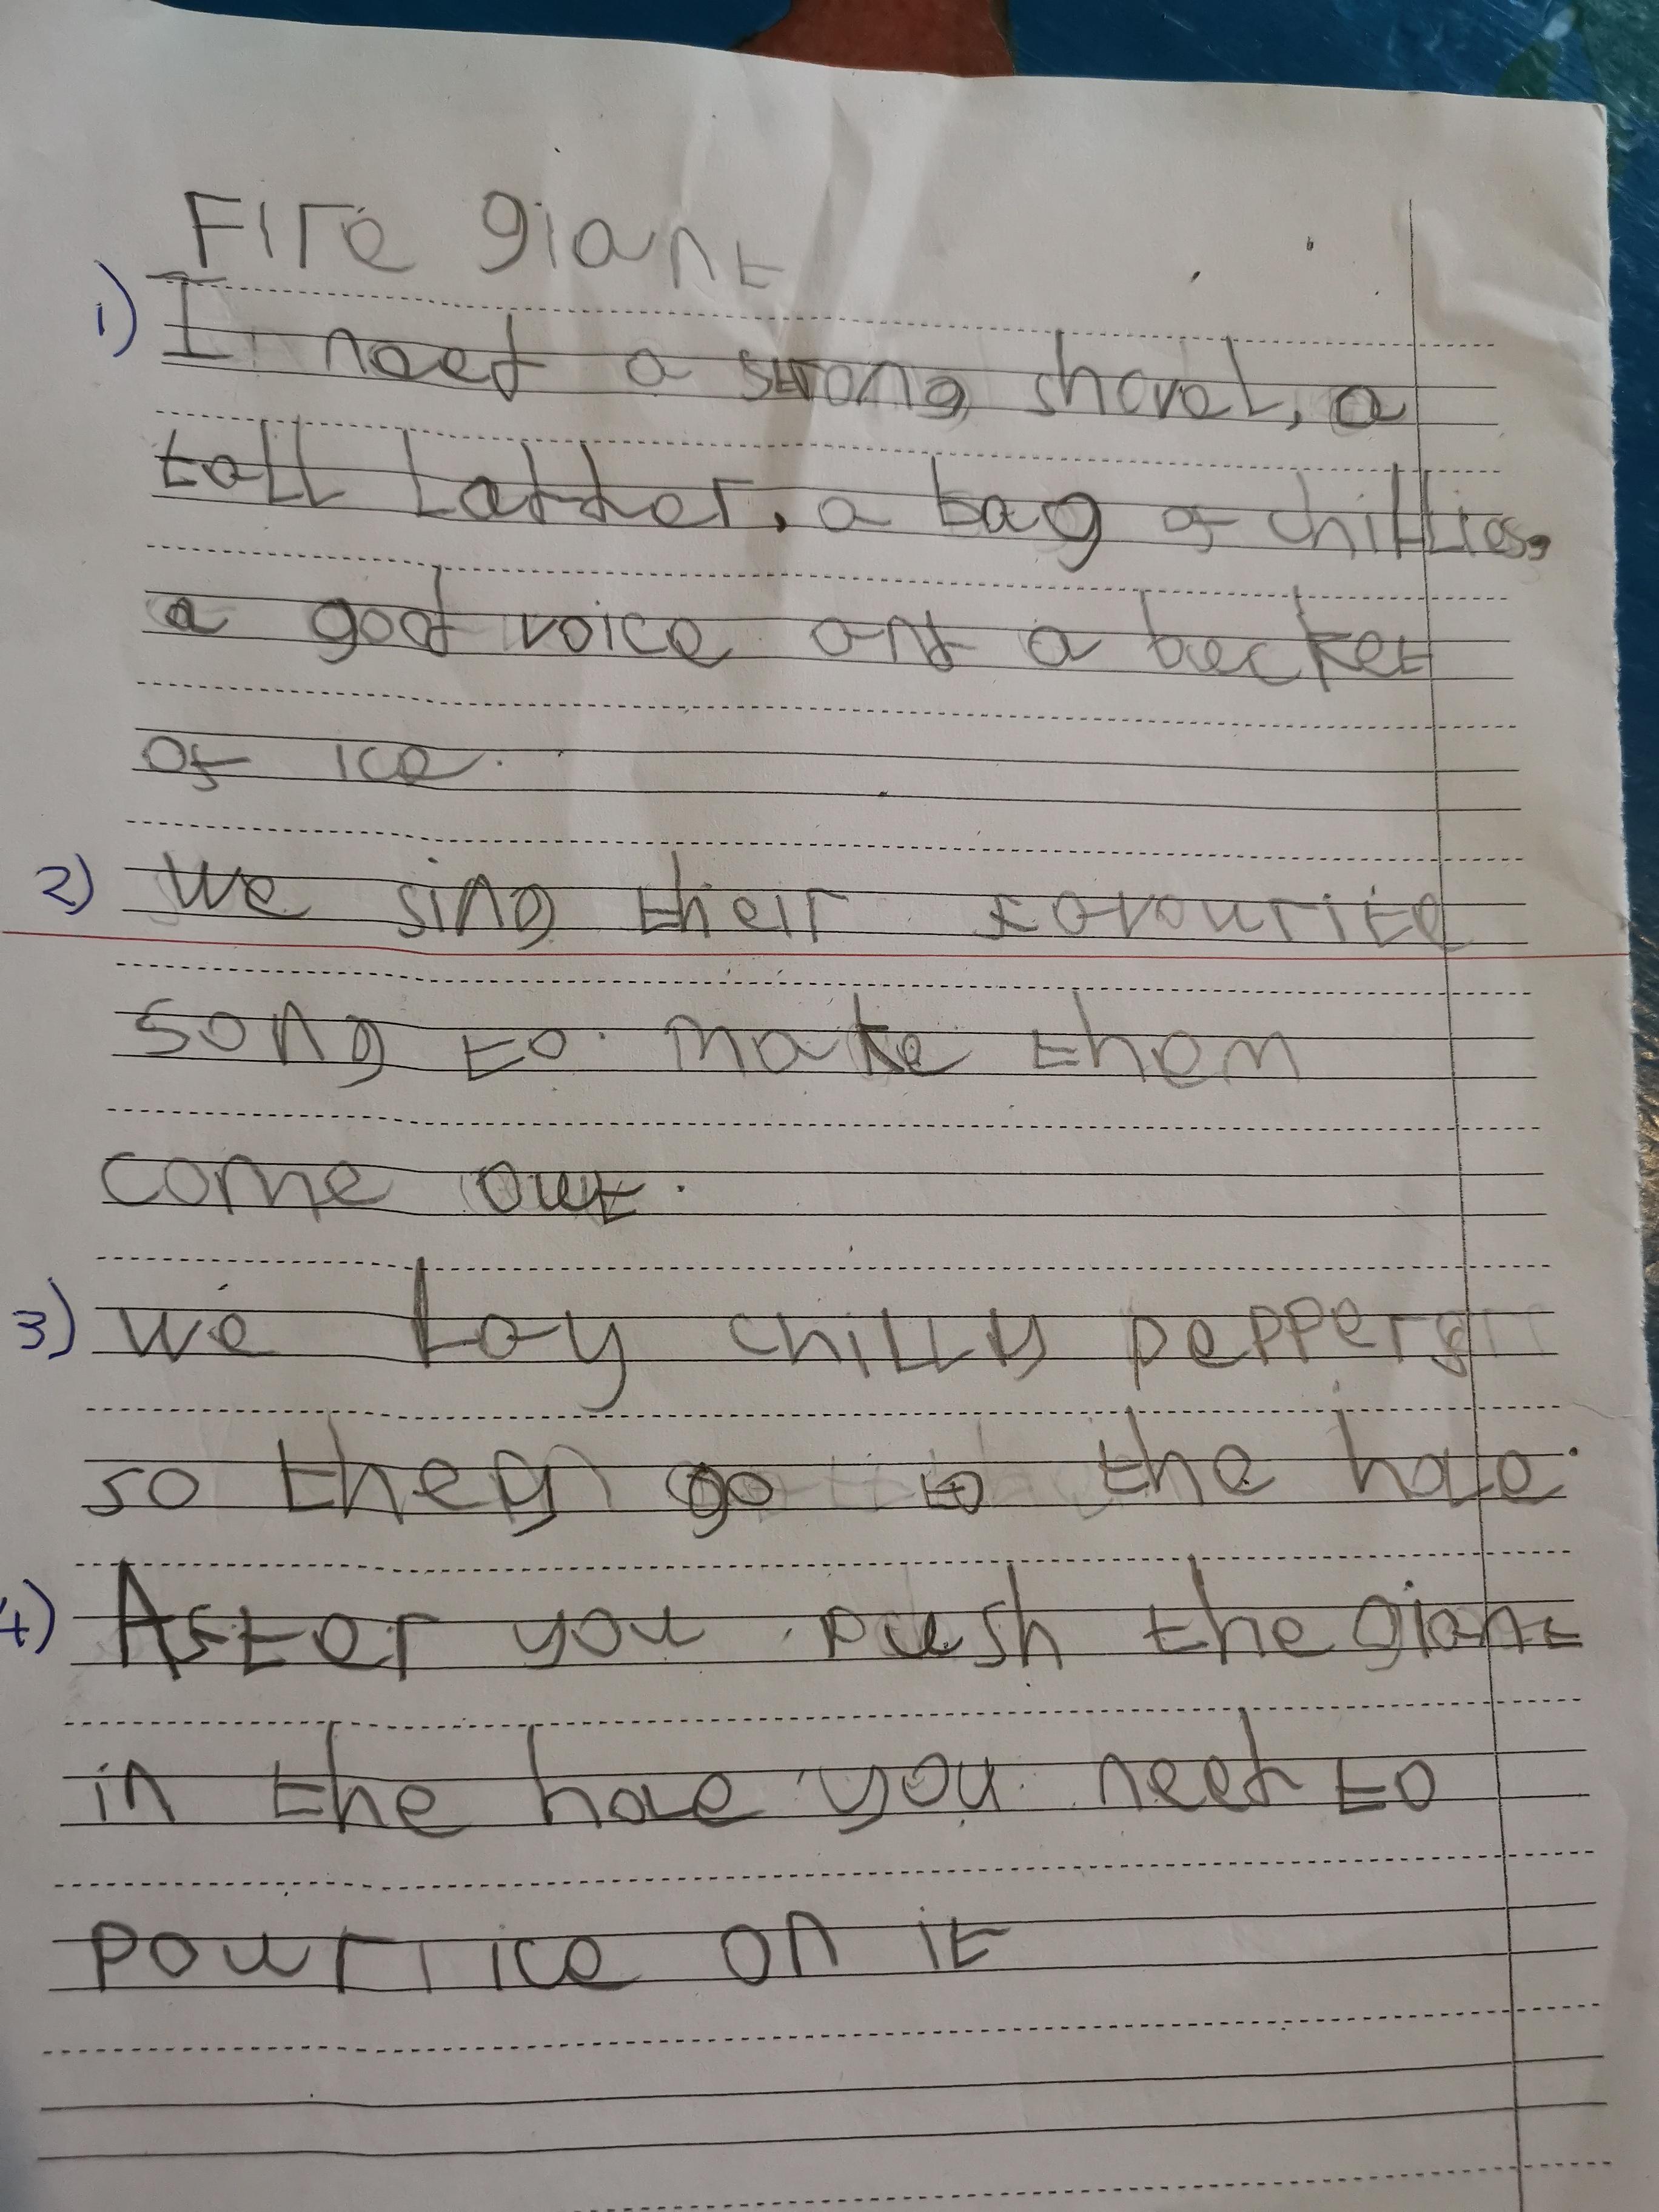 Fire giant
1) I need a strong shovel, a
tall ladder, a bag of chillies,
a good voice and a becket
of ice.
2) We sing their favourite
song to make them
come out.
3) We lay chilly peppers
so they go to the hole.
4) After you push the giant
in the hole you need to
pour ice on it